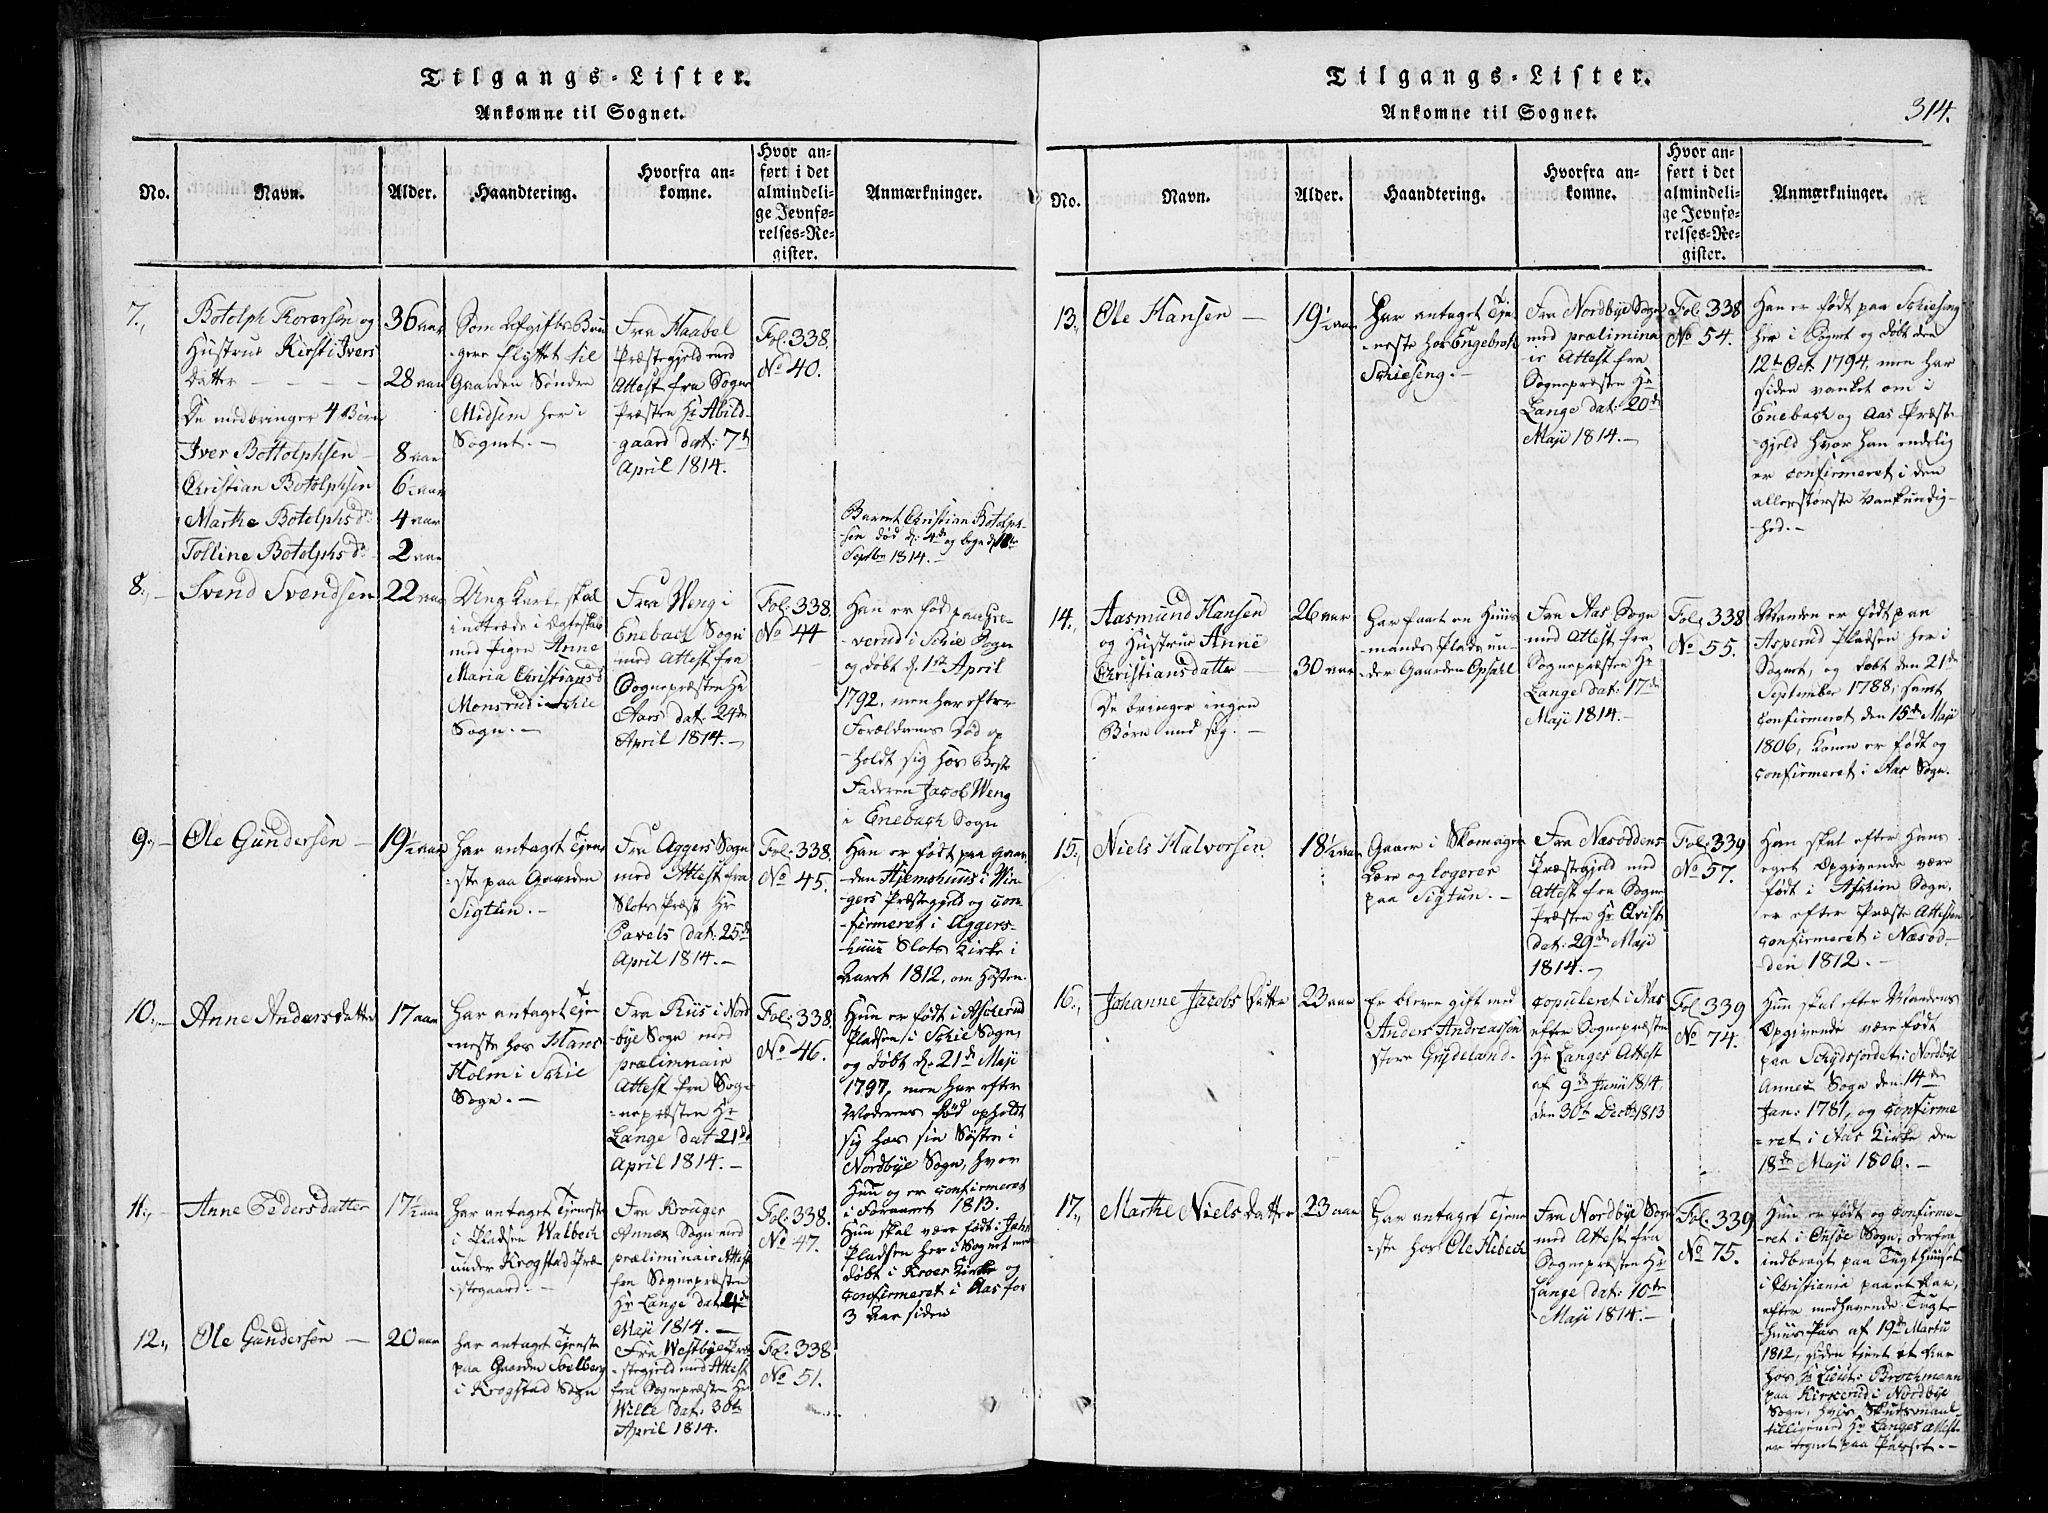 Tilgangs-Lister.
Ankomne til Sognet.
No.
Navn.
Alder.
Haandtering.
Hvorfra an-
komne.
Hvor an-
ført i det
almindeli-
ge Jevnfø-
relses-Re-
gister.
Anmærkninger.
7.,
Botolph Torersen og
Hustrue Kirsti Ivers
datter - - - -
De medbringer 4 Børn
Iver Bottolphsen -
Christian Botolphsen
Marthe Botolphsd.
Tolline Botolphsd. -
36 aar
28 aar
8 aar
6½ aar
4 aar
2 aar
Som
gere flyttet til
Gaarden Søndre
Midsem her i
Sognet. -
Fra Haabel
Præstegjeld med
Attest fra Sogne
Præsten Hr Abild-
gaard dat: 7d
April 1814.
Fol: 338.
No 40.
Barnet Christian Botolph-
sen død d. 4de og begr d.
Septbr 1814. -
8., -
Svend Svendsen
22 aar
Ung Karl, skal
indtræde i Ægteskab
med Pigen Anne
Maria Christiansd
Monsrud i Schie
Sogn. -
Fra Weng i
Enebach Sogn
med Attest fra
Sognepræsten Hr
Aars dat: 24de
April 1814. -
Fol: 338.
No 44
Han er fød paa
verud i Schie Sogn
og døbt d. 1ste April
1792, men har efter
Forældrenes Død op
-holdt sig hos Beste
Faderen Jacob Weng
i Enebach Sogn
9., -
Ole Gundersen -
19½ aar
har antaget Tjene
-ste paa Gaarden
Sigtun. -
Fra Aggers Sogn
med Attest fra
Slots Præst Hr
Pavels dat: 25de
April 1814. -
Fol: 338.
No 45.
Han er født paa Gaar
den Hjemshuus i Win-
gers Præstegjeld og con-
firmeret i Aggers-
huus Slots Kirke i
Aaret 1812, om Høsten.
10., -
Anne Andersdatter
17 aar
har antaget Tje
neste hos Hans
Holm i Schie
Sogn. -
Fra Riis i Nord
bye Sogn med
prælimnair
Attest fra Sog-
nepræsten Hr
Lange dat 21de
April 1814. -
Fol: 338.
No 46.
Hun er født i
Pladsen i Schie Sogn,
og døbt d. 21de Maji
1797, men har efter
Moderens Død opholdt
sig hos sin Søster i
Nordbye Sogn, hvor
hun og er confirmeret
i Foraaret 1813.
11., -
Anne Pedersdatter
17½ aar
har antaget Tjeneste
i Pladsen Walbech
under Krogstad Præ
-stegaard. -
Fra Krouger
Annex Sogn med
præliminair Attest
fra Sognepræsten
Hr Lange dat
Maji 1814. -
Fol: 338.
No 47.
Hun skal være født i
Pladsen her i Sognet med
døbt i Kroer Kirke og
confirmeret i Aas for
3 Aar siden
12.,
Ole Gundersen -
20 aar
har antaget Tjeneste
paa Gaarden Solberg
i Krogstad Sogn
Fra Westbye Præ
-stegjeld med Attest
fra Sognepræsten Hr
Wille dat: 30te
April 1814.
Fol: 338
No 51.
Tilgangs-Lister.
Ankomne til Sognet.
314.
No.
Navn.
Alder.
Haandtering.
Hvorfra an-
komne.
Hvor an-
ført i det
almindeli-
ge Jevnfø-
relses-Re-
gister.
Anmærkninger.
13.,
Ole Hansen -
19½ aar
Har antaget Tje
-neste hos Engebret
Schieseng. -
Fra Nordbye Sogn
med prælimina
ir Attest fra
Sognepræsten Hr
Lange dat: 20de
Maji 1814. -
Fol: 338
No 54.
Han er født paa Schieseng
her i Sognet og døbt den
12te Oct. 1794, men har
siden vanket om i
Enebach og Aas Præste-
gjeld hvor han endelig
er confirmeret i den
allerstørste Vankundig-
-hed. -
14.,
Aasmund Hansen
og Hustrue Anne
Christiansdatter -
De bringer ingen
Børn med sig. -
26 aar
30 aar
har faaet en Huus
mands Plads un-
der Gaarden Opsall
Fra Aas Sogn
med Attest fra
Sognepræsten Hr
Lange dat: 17de
Maji 1814. -
Fol: 338
No 55.
Manden er født paa
Asperud Pladsen her i
Sognet, og døbt den 21de
September 1788, samt
confirmeret den 15de Maji
1806, Konen er født og
confirmeret i Aas Sogn.
15.,
Niels Halvorsen.
18½ aar
Gaaer i Skomager
Lære og logerer
paa Sigtun. -
Fra Næsoddens
Præstegjeld med
Attest fra Sogne
Præsten Hr Qvist
dat: 29de Maji
1814. -
Fol: 339
No 57.
Han skal efter hans
eget Opgivende være
født i Aschim Sogn,
er efter Præste Attesten
confirmeret i Næsod-
den 1812. -
16.,
Johanne Jacobs Datter
23 aar
Er bleven gift med
Anders Andreassen
store Grydeland. -
copuleret i Aas
efter Sognepræsten
Hr Langes Attest
af 9de Junii 1814
den 30te Decbr 1813
Fol: 339
No 74.
Hun skal efter Mandens
Opgivende være født
paa Schydsjordet i Nordbye
Annex Sogn den 14de
Jan: 1781, og confirme
-ret i Aas Kirke den
18de Maji 1806. -
17.,
Marthe Nielsdatter
23 aar
har antaget Tjene
-ste hos Ole Hebech
Fra Nordbye Sogn
med Attest fra
Sognepræsten Hr
Lange dat: 10de
Maji 1814. -
Fol: 339
No 75.
Hun er født og confirme-
ret i Onsøe Sogn, derfra
indbragt paa Tugthuuset
i Christiania paa et Aar,
efter medhavende Tugt-
huus Pas af 19de Martii
1812, siden tjent et Aar
hos Lieut: Brochmann
paa Kirkerud i Nordbye
Sogn, hvis Skudsmaal
tilligemed Hr Langes Attest
er tegnet paa Passet. -